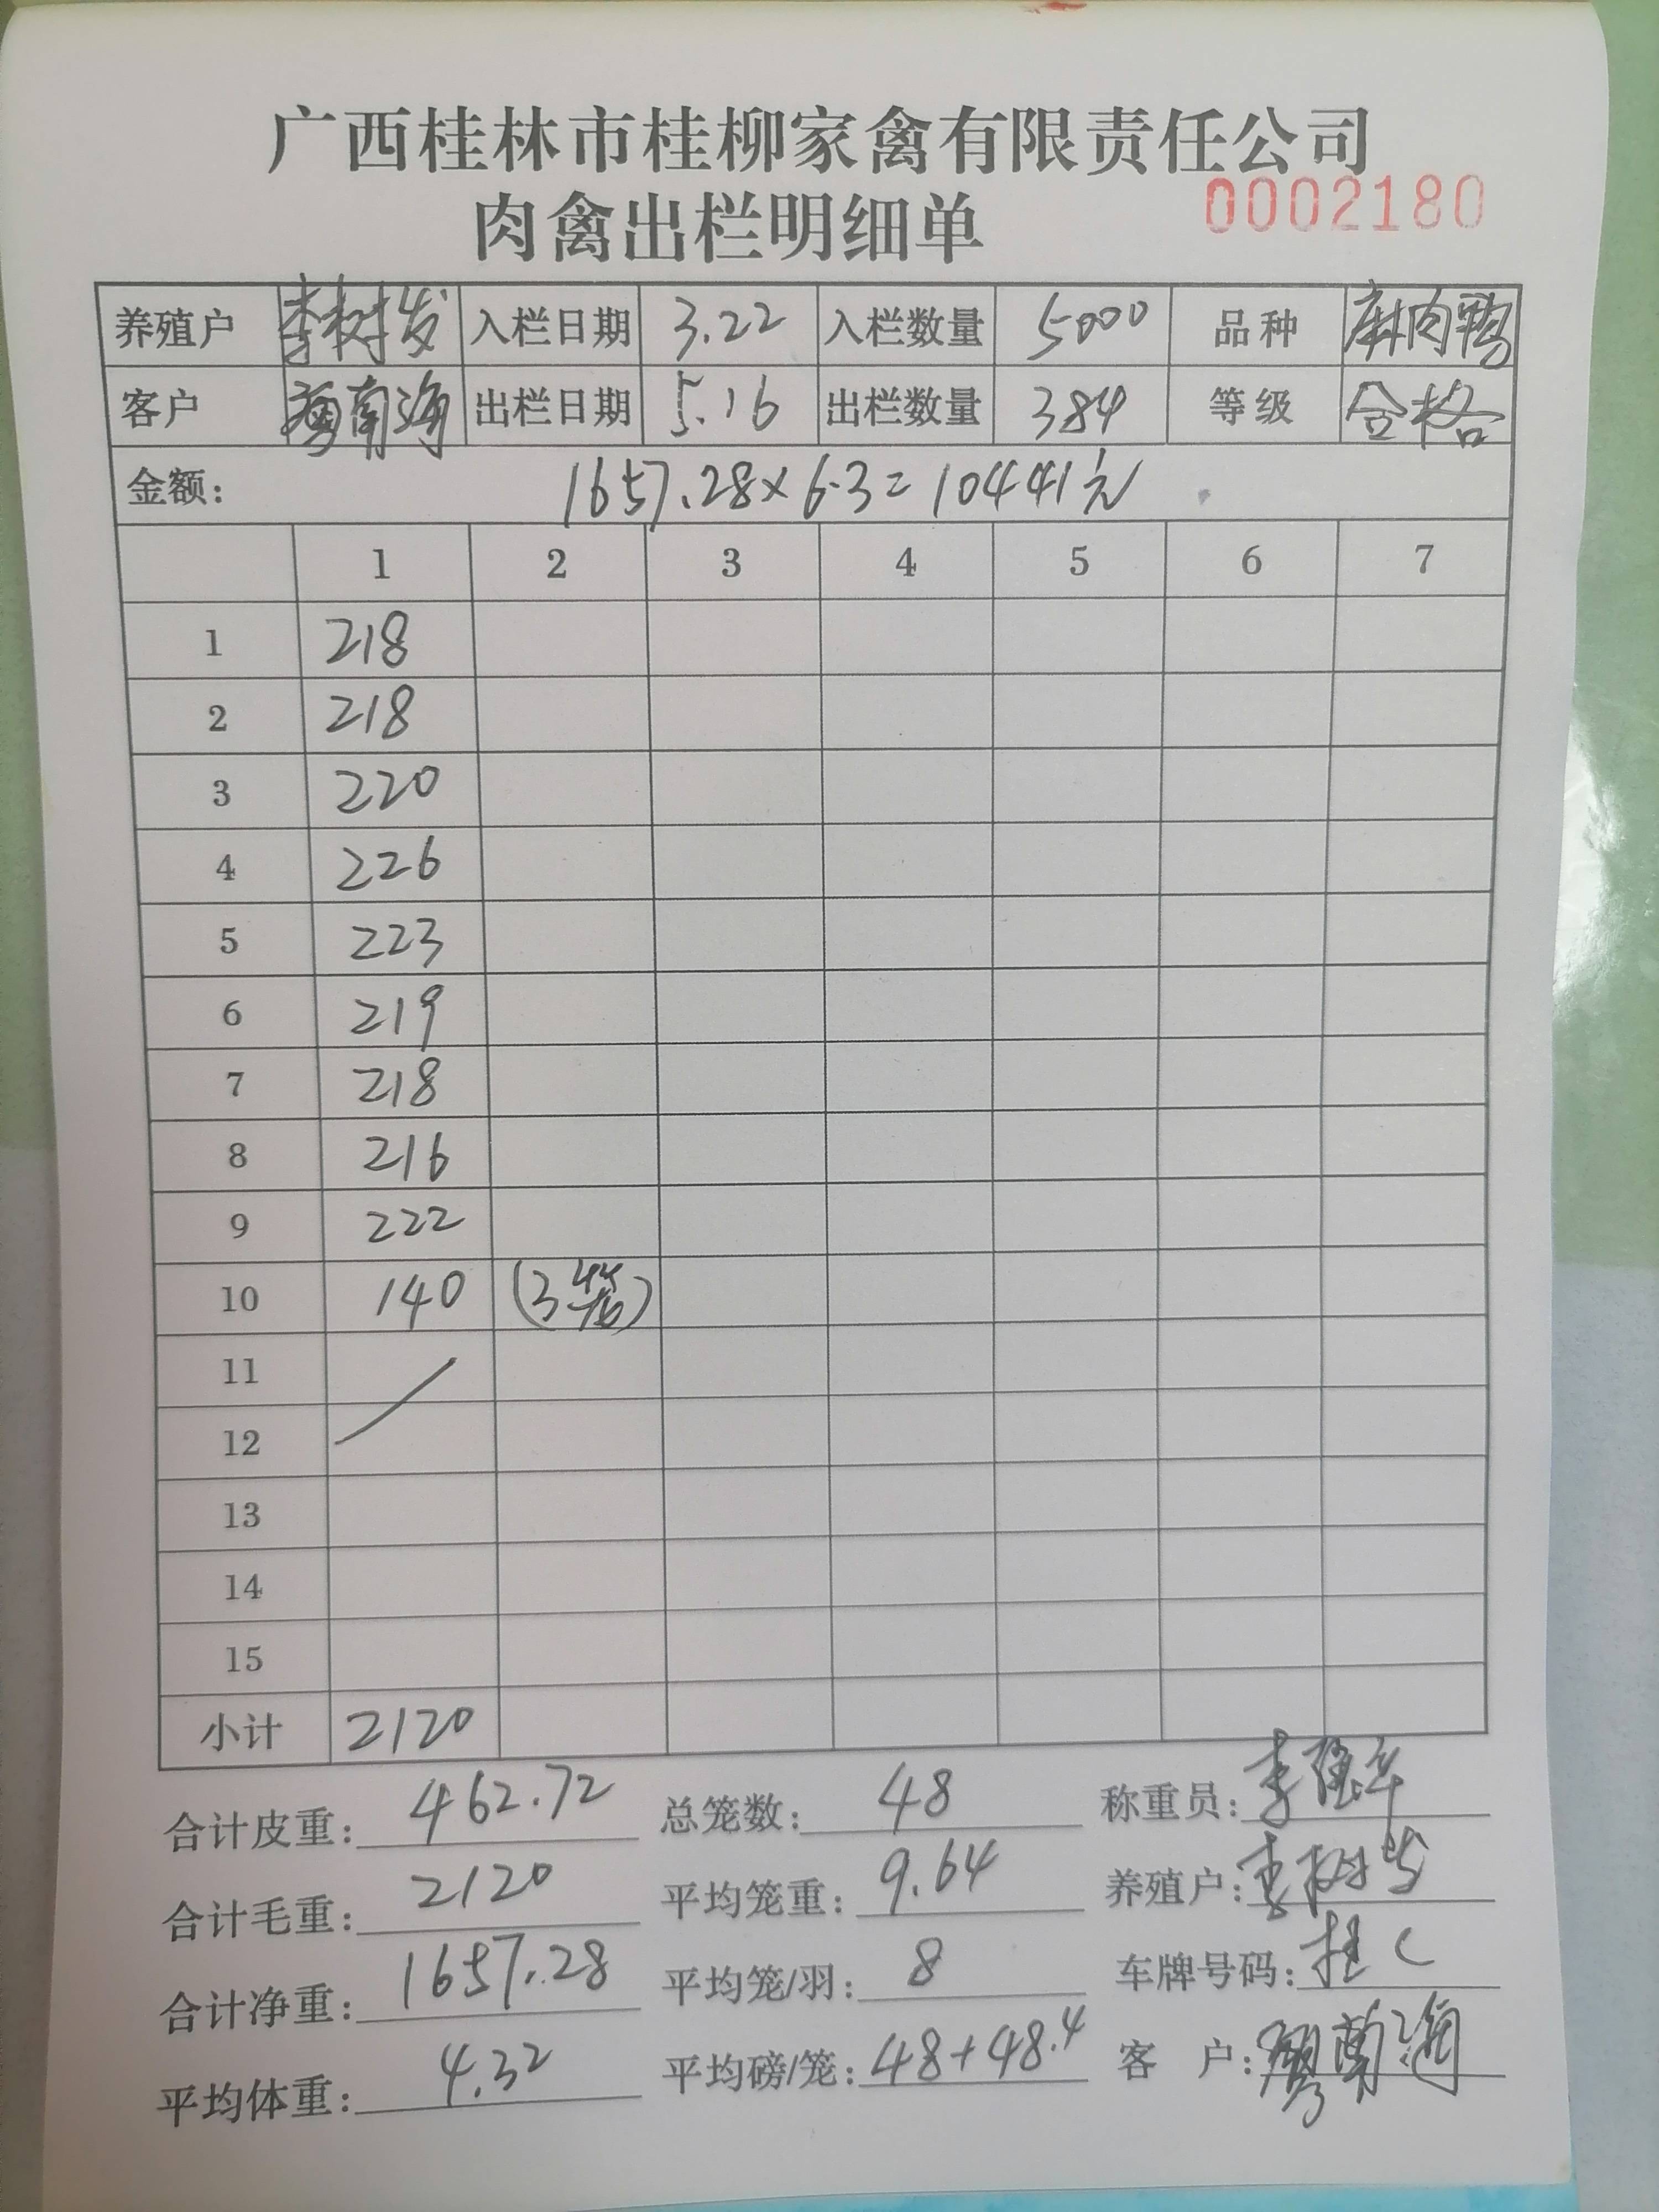 广西桂林市桂柳家禽有限责任公司
肉禽出栏明细单 0002180
养殖户 李树发 入栏日期 3.22 入栏数量 5000 品种 麻肉鸭
客户 南海 出栏日期 5.16 出栏数量 384 等级 合格
金额: 1657.28×6.3=10441元
1 2 3 4 5 6 7
1 218
2 218
3 220
4 226
5 223
6 219
7 218
8 216
9 222
10 140 (3笼)
11
12
13
14
15
小计 2120
合计皮重: 462.72 总笼数: 48 称重员: 李
合计毛重: 2120 平均笼重: 9.64 养殖户: 李树发
合计净重: 1657.28 平均笼/羽: 8 车牌号码: 桂C
平均体重: 4.32 平均磅/笼: 48+48.4 客 户: